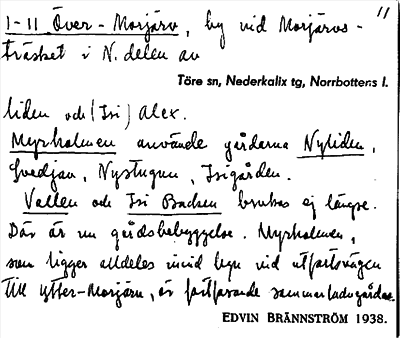 11
1-11 Över-Morjärv, by vid Morjärvs-
träsket i N. delen av
Töre sn, Nederkalix tg, Norrbottens l.
liden och (Isi) Alex.
Myrholmen använde gårdarna Nyliden,
Svedjan, Nystugun, Isigården.
Vallen och Isi Backen brukas ej längre.
Där är nu gårdsbebyggelse. Myrholmen,
som ligger alldeles invid byn vid utfartsvägen
till Ytter-Morjärv, är fortfarande sommarladugårdar.
EDVIN BRÄNNSTRÖM 1938.